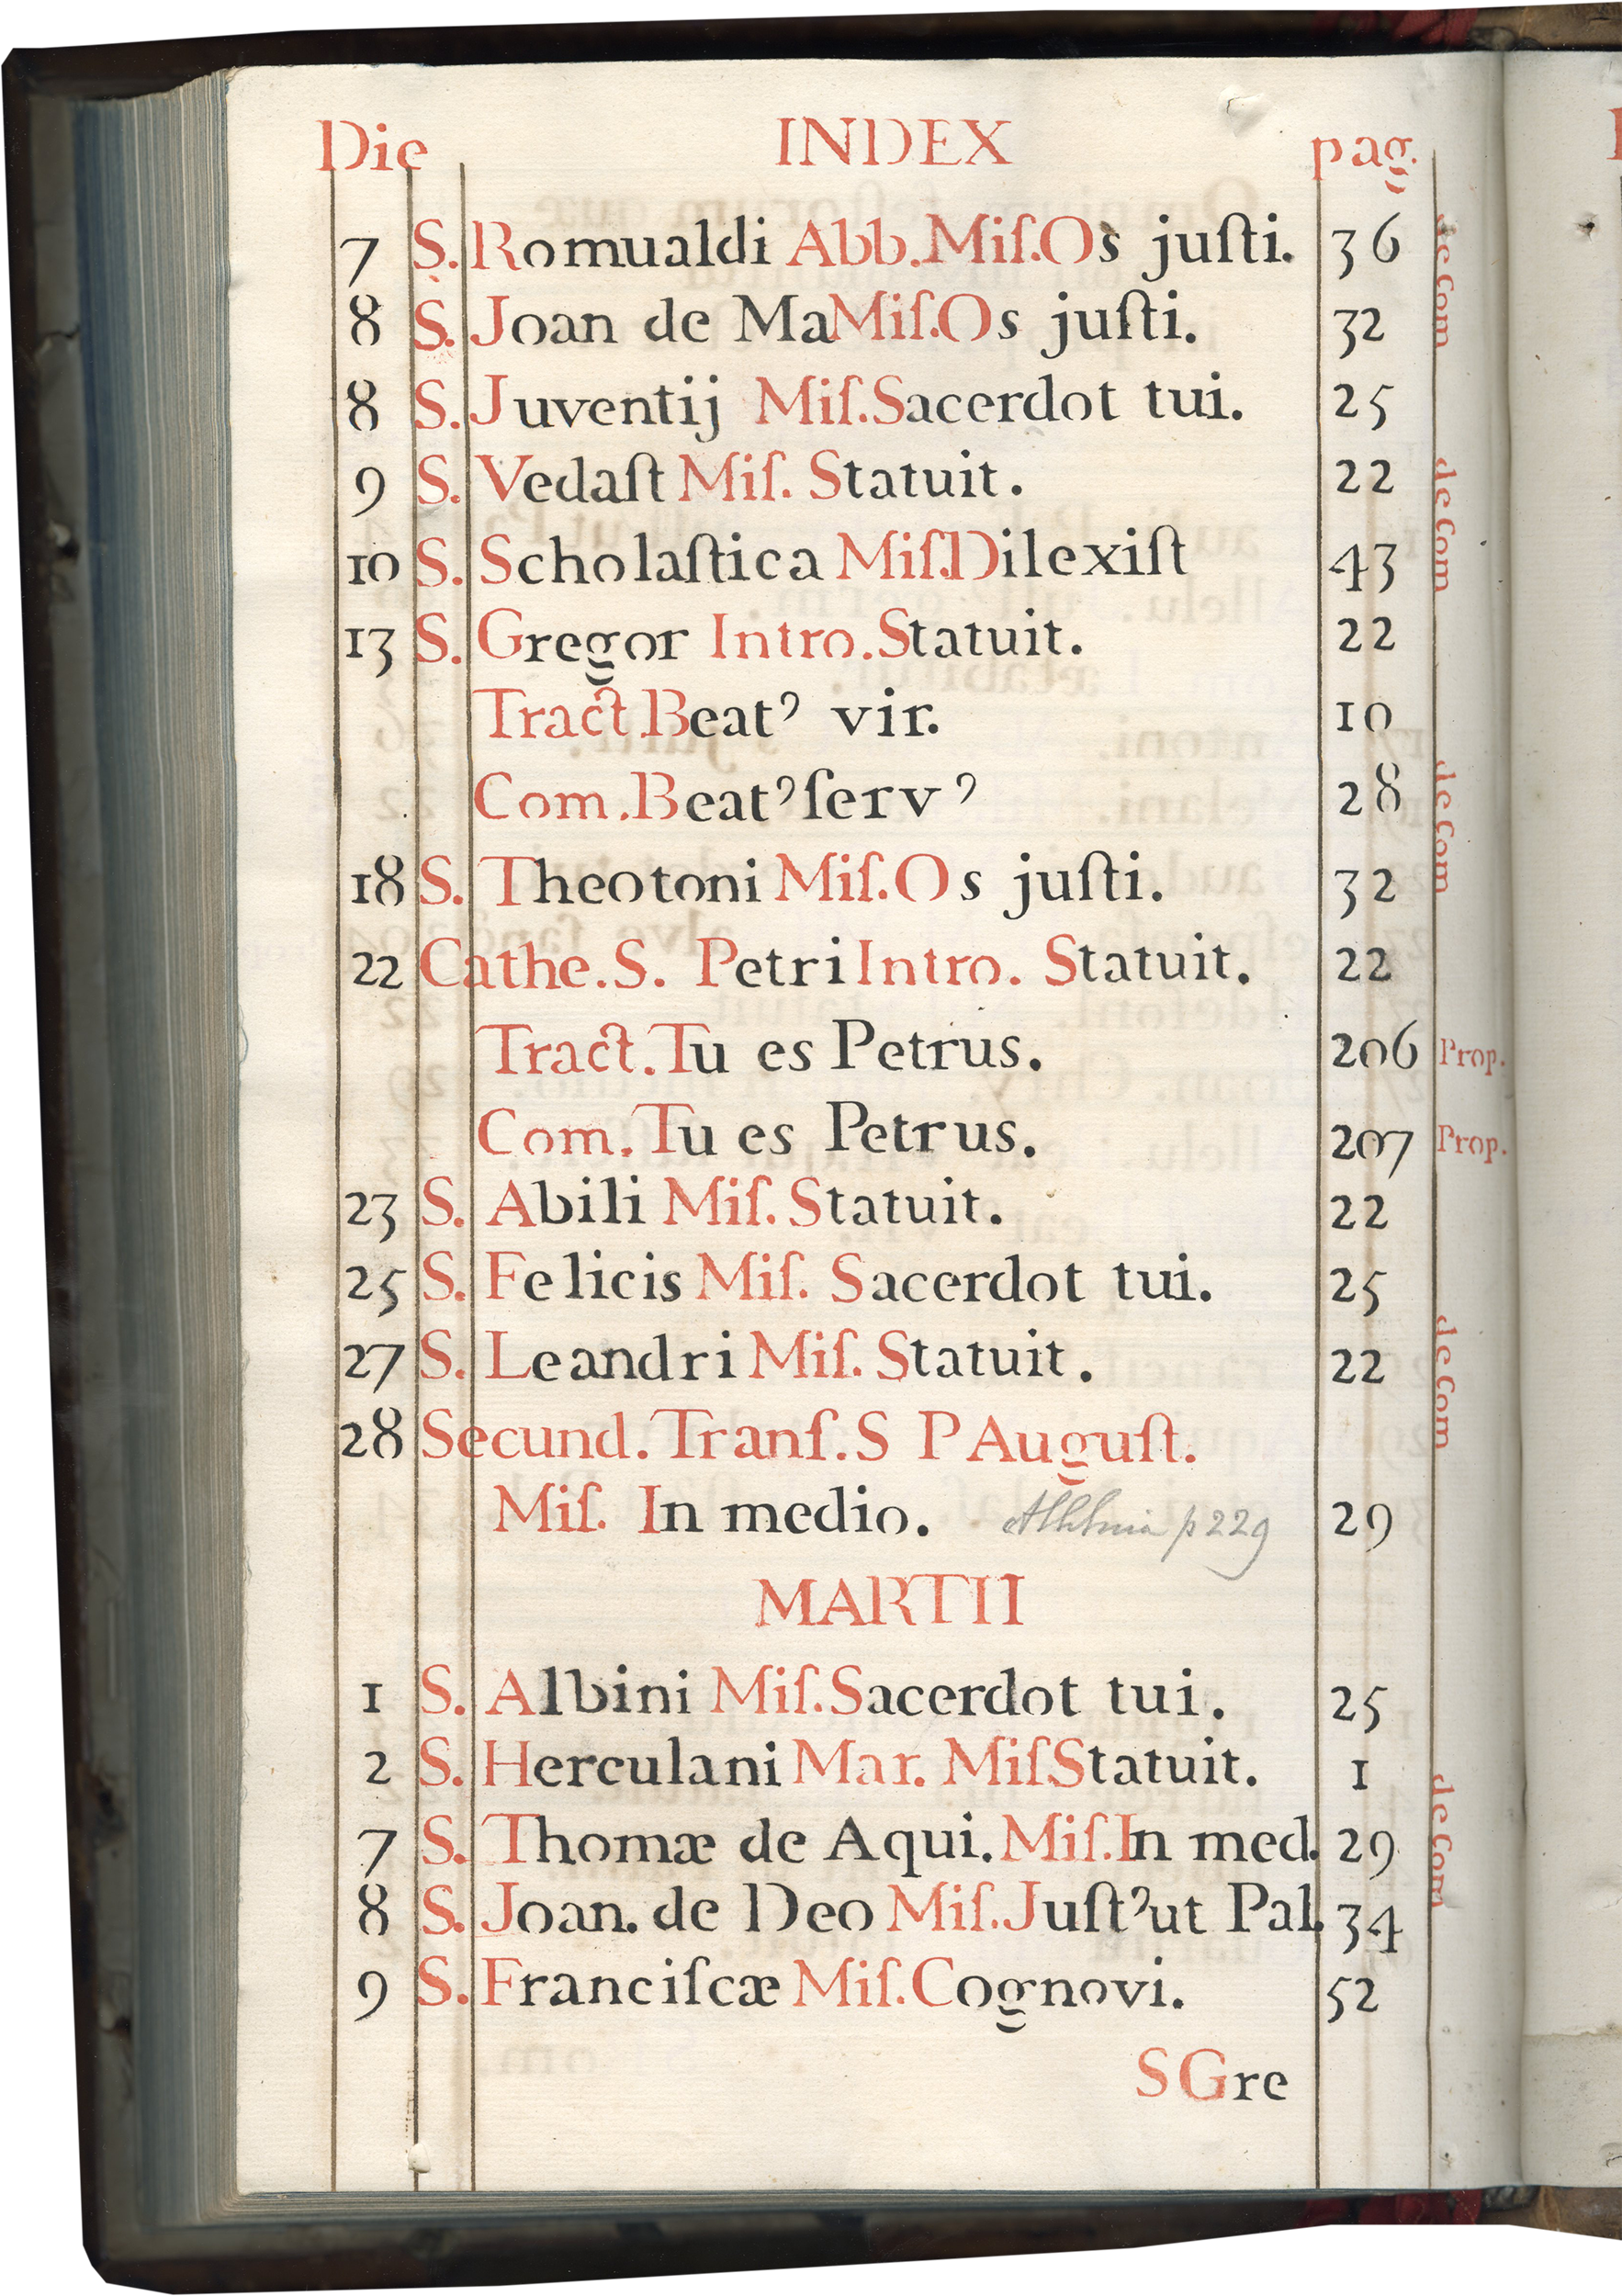 Die INDEX pag.
7 S. Romualdi Abb. Miſ. Os juſti. 36
8 S. Joan de Ma Miſ. Os juſti. 32
8 S. Juventij Miſ. Sacerdot tui. 25
9 S. Vedaſt Miſ. Statuit. 22
10 S. Scholaſtica Miſ. Dilexiſt 43
13 S. Gregor Intro. Statuit. 22
Tract. Beatꝰ vir. 10
Com. Beatꝰ ſervꝰ 28
18 S. Theotoni Miſ. Os juſti. 32
22 Cathe. S. Petri Intro. Statuit. 22
Tract. Tu es Petrus. 206 Prop.
Com. Tu es Petrus. 207 Prop.
23 S. Abili Miſ. Statuit. 22
25 S. Felicis Miſ. Sacerdot tui. 25
27 S. Leandri Miſ. Statuit. 22
28 Secund. Tranſ. S P Auguſt.
Miſ. In medio. p 229 29
MARTII
1 S. Albini Miſ. Sacerdot tui. 25
2 S. Herculani Mar. Miſ Statuit. 1
7 S. Thomæ de Aqui. Miſ. In med. 29
8 S. Joan. de Deo Miſ. Juſtꝰ ut Pal. 34
9 S. Franciſcæ Miſ. Cognovi. 52
S Gre
de Com
de Com
de Com
de Com
de Com